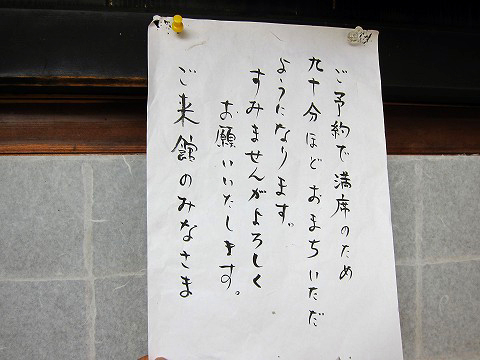 ご予約で満席のため
九十分ほどおまちいただ
ようになります。
すみませんがよろしく
お願いいたします。
ご来館のみなさま